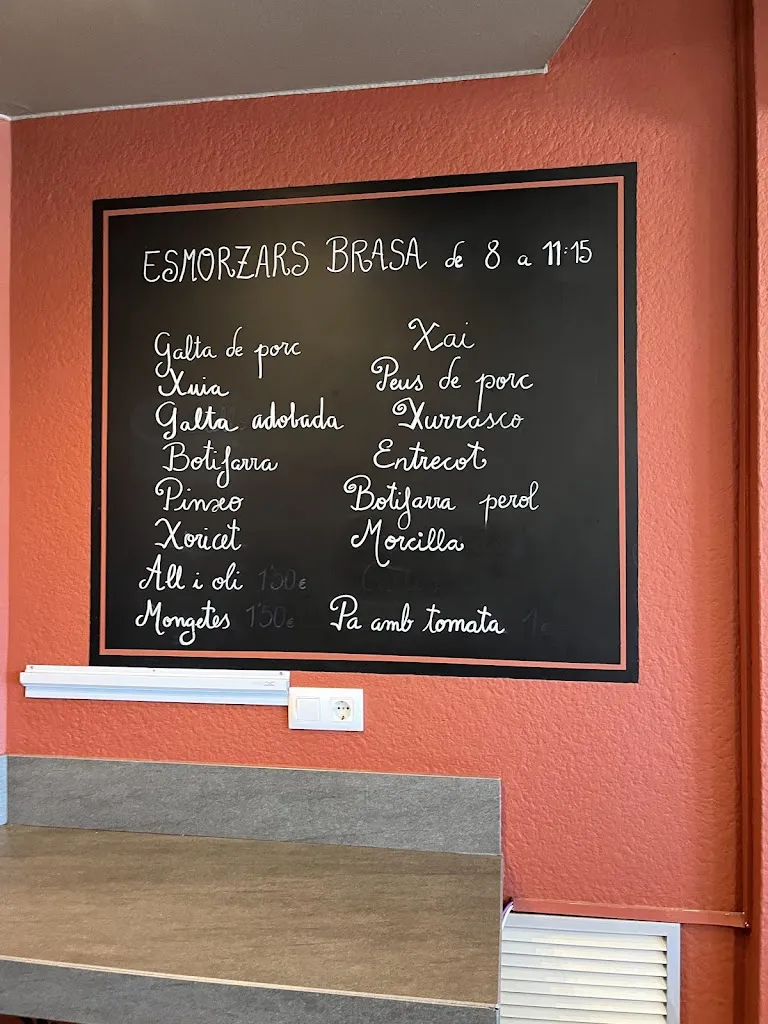 ESMORZARS BRASA de 8 a 11:15
Galta de porc
Xuia
Galta adobada
Botifarra
Pinxo
Xoricet
All i oli 1'50€
Mongetes 1'50€
Xai
Peus de porc
Xurrasco
Entrecot
Botifarra perol
Morcilla
Pa amb tomata 1€